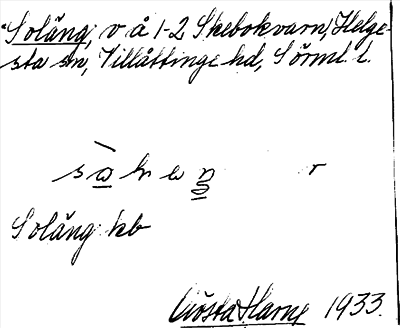 Soläng, v å 1-2 Skebokvarn, Helge-
sta sn, Villåttinge hd, Sörml. l.
Soläng kb
Gösta Harne 1933.